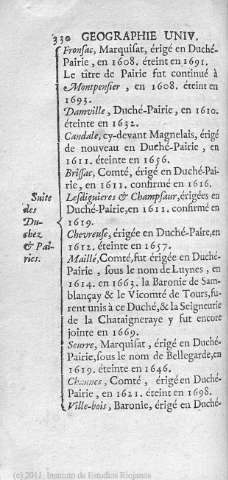 330 GEOGRAPHIE UNIV.
Fronsac, Marquisat, érigé en Duché-
Pairie, en 1608. éteint en 1691.
Le titre de Pairie fut continué à
Montpensier, en 1608. éteint en
1693.
Damville, Duché-Pairie, en 1610.
éteinte en 1632.
Candale, cy-devant Magnelais, érigé
de nouveau en Duché-Pairie, en
1611. éteinte en 1656.
Brissac, Comté, érigée en Duché-Pai-
rie, en 1611. confirmé en 1616.
Lesdiguieres & Champsaur, érigées en
Duché-Pairie, en 1611. confirmé en
1619.
Chevreuse, érigée en Duché-Paire, en
1612. éteinte en 1657.
Maillé, Comté, fut érigée en Duché-
Pairie, sous le nom de Luynes, en
1614. en 1663. la Baronie de Sam-
blançay & le Vicomté de Tours, fu-
rent unis à ce Duché, & la Seigneurie
de la Chataigneraye y fut encore
jointe en 1669.
Seurre, Marquisat, érigé en Duché-
Pairie, sous le nom de Bellegarde, en
1619. éteinte en 1646.
Chaunes, Comté, érigé en Duché-
Pairie, en 1621. éteint en 1698.
Ville-bois, Baronie, érigé en Duché-
Suite
des
Du-
chez
& Pai-
ries.
(c) 2011 Instituto de Estudios Riojanos